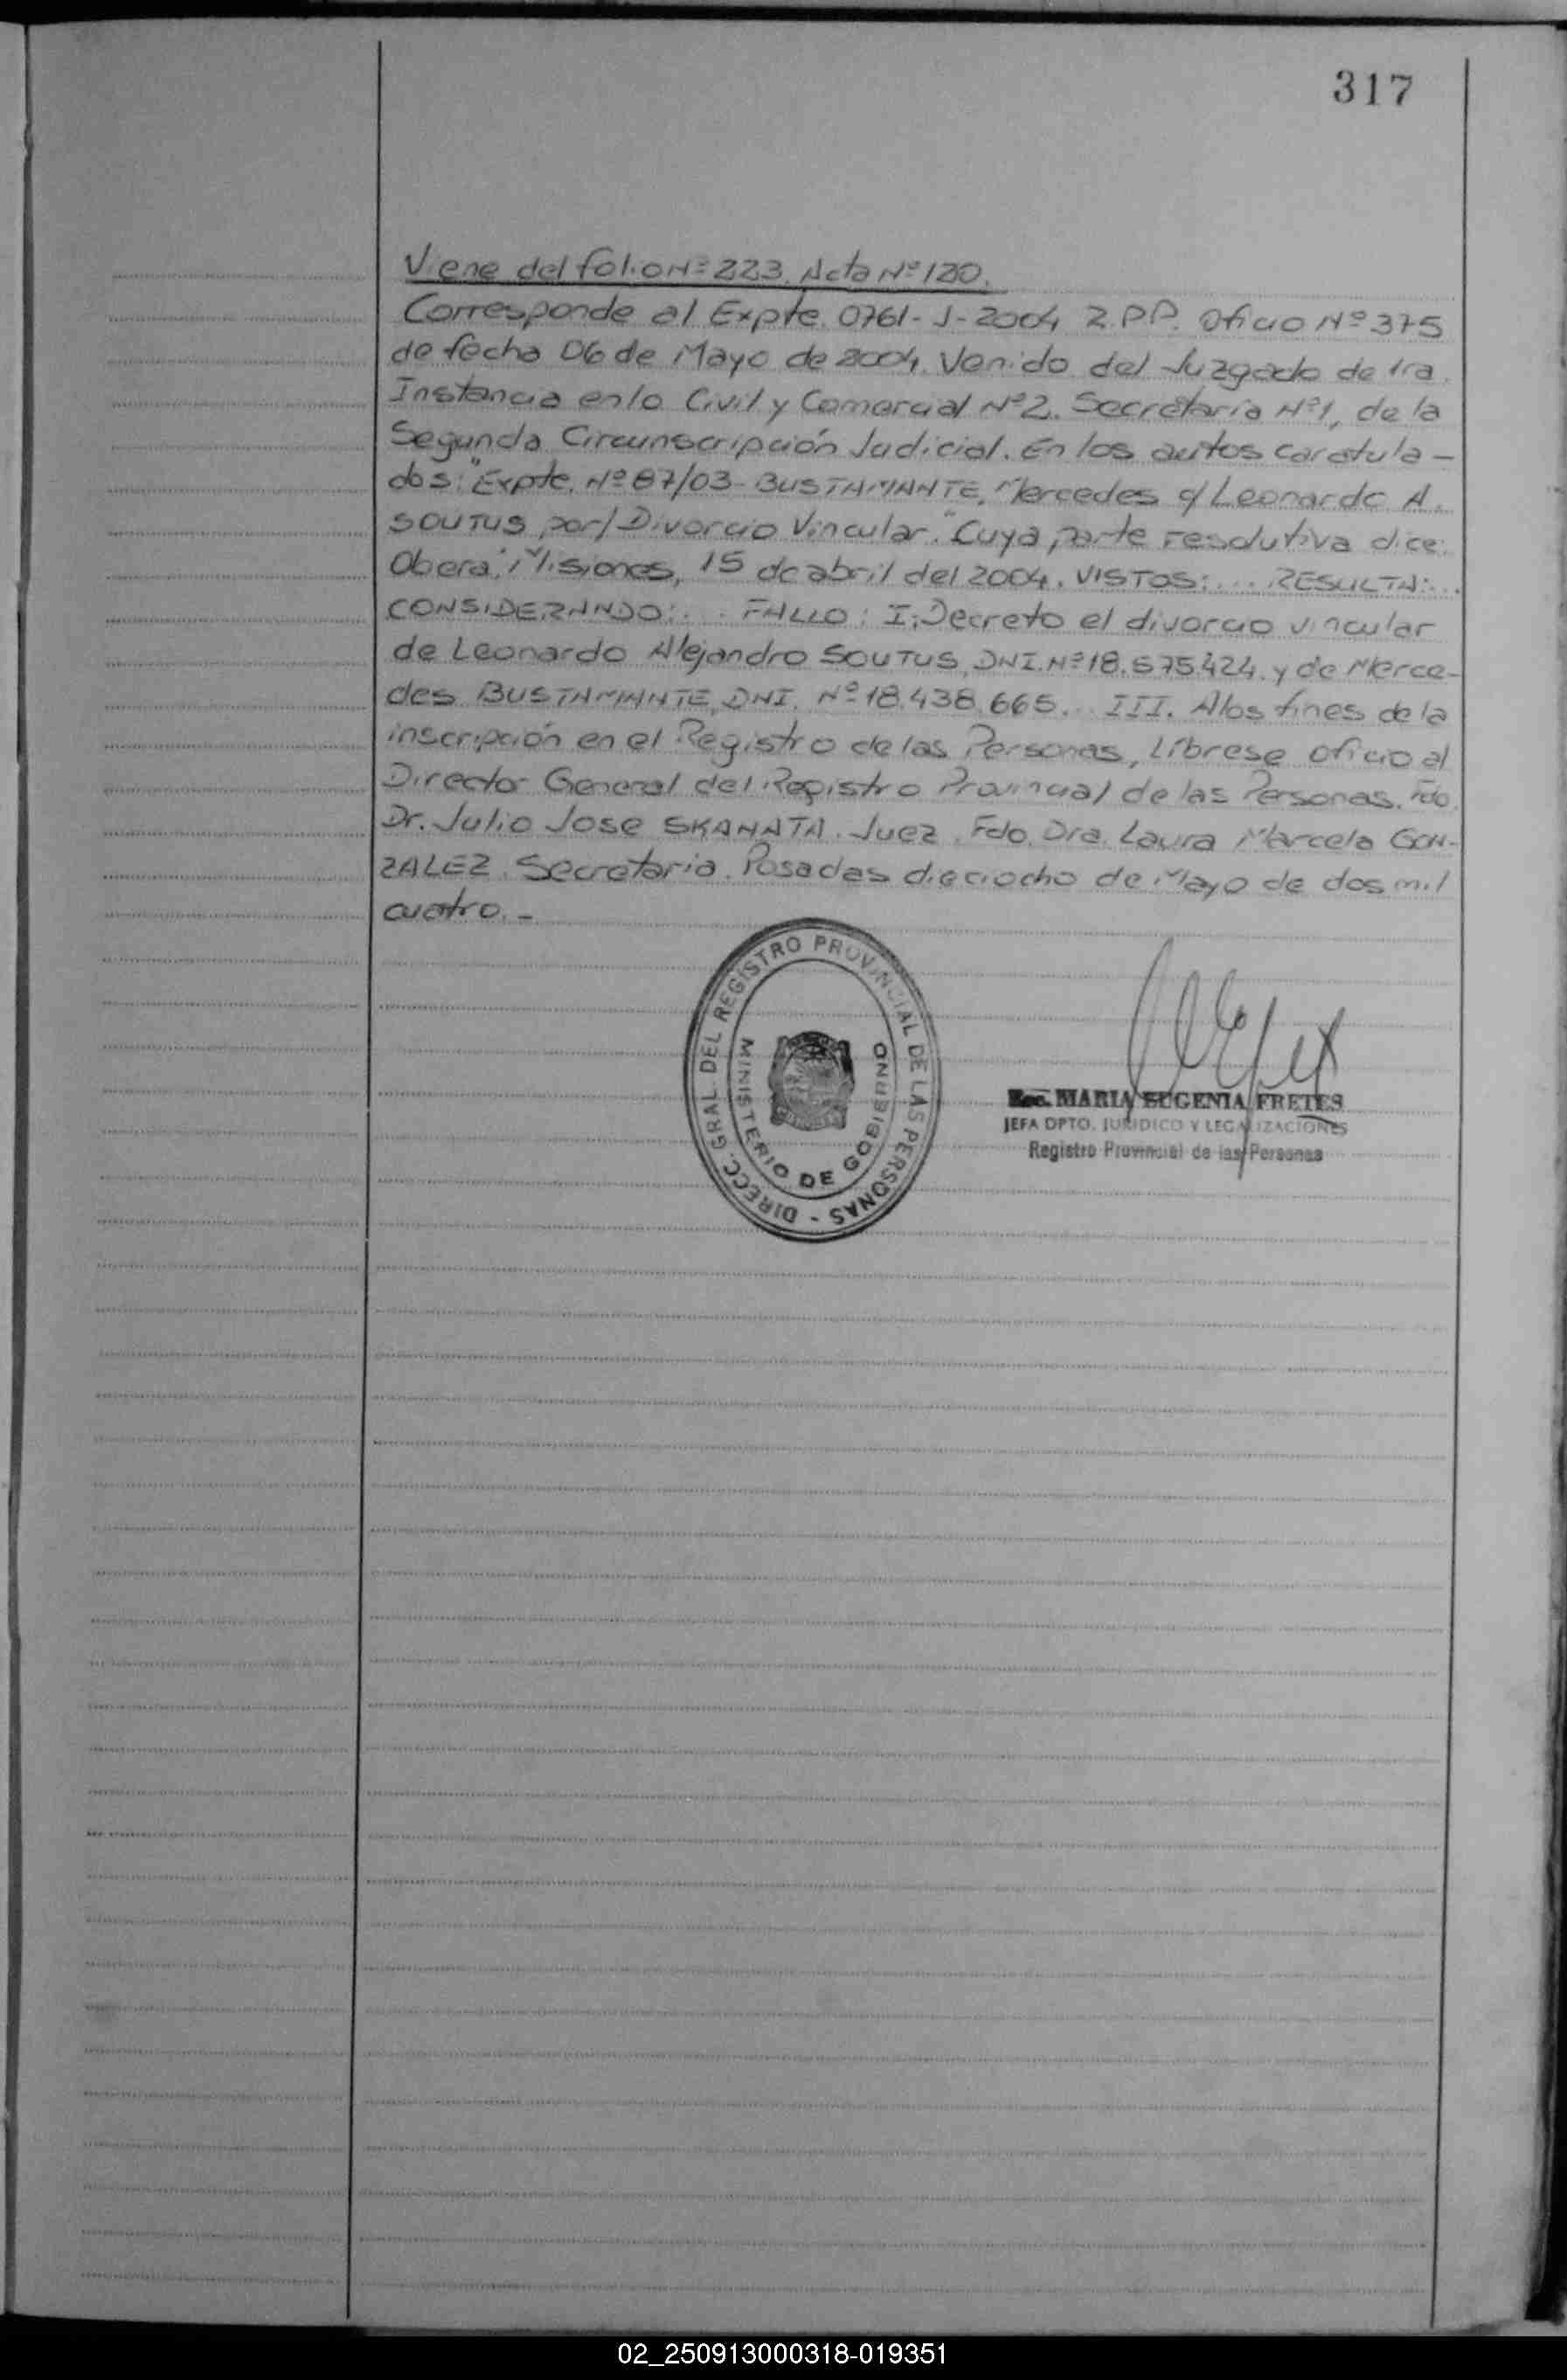 317
Viene del folio Nº 223. Acta Nº 120.
Corresponde al Expte. 0761-J-2004 R.P.P. Oficio Nº 375
de fecha 06 de Mayo de 2004. Venido del Juzgado de 1ra.
Instancia en lo Civil y Comercial Nº2. Secretaría Nº1, de la
Segunda Circunscripción Judicial. En los autos caratula-
dos: "Expte. Nº 87/03- BUSTAMANTE, Mercedes c/ Leonardo A.
SOUTUS por/ Divorcio Vincular." Cuya parte resolutiva dice:
Oberá, Misiones, 15 de abril del 2004. VISTOS:... RESULTA:...
CONSIDERANDO:... FALLO: I: Decreto el divorcio vincular
de Leonardo Alejandro SOUTUS, DNI. Nº 18.575.424. y de Merce-
des BUSTAMANTE, DNI. Nº 18.438.665... III. A los fines de la
inscripción en el Registro de las Personas, Líbrese oficio al
Director General del Registro Provincial de las Personas. Fdo.
Dr. Julio Jose SKANATA. Juez. Fdo. Dra. Laura Marcela GON-
ZALEZ. Secretaria. Posadas dieciocho de Mayo de dos mil
cuatro.-
DIRECC. GRAL. DEL REGISTRO PROVINCIAL DE LAS PERSONAS -
MINISTERIO DE GOBIERNO
Esc. MARIA EUGENIA FRETES
JEFA DPTO. JURIDICO Y LEGALIZACIONES
Registro Provincial de las Personas
02_250913000318-019351